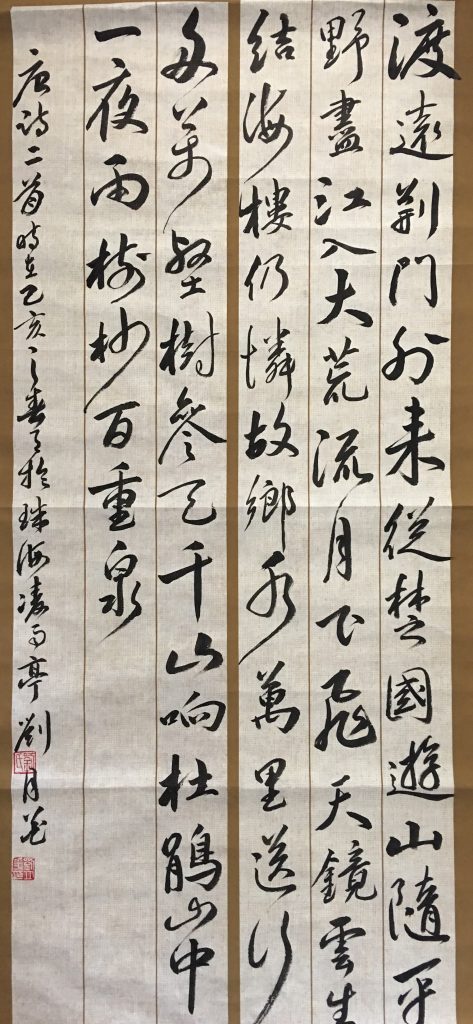 渡遠荊門外来從楚國遊山隨平
野盡江入大荒流月下飛天鏡雲生
结海樓仍憐故鄉水萬里送行
舟万壑樹參天千山响杜鹃山中
一夜雨树杪百重泉
唐诗二首時在乙亥之春於珠海凌亭劉月